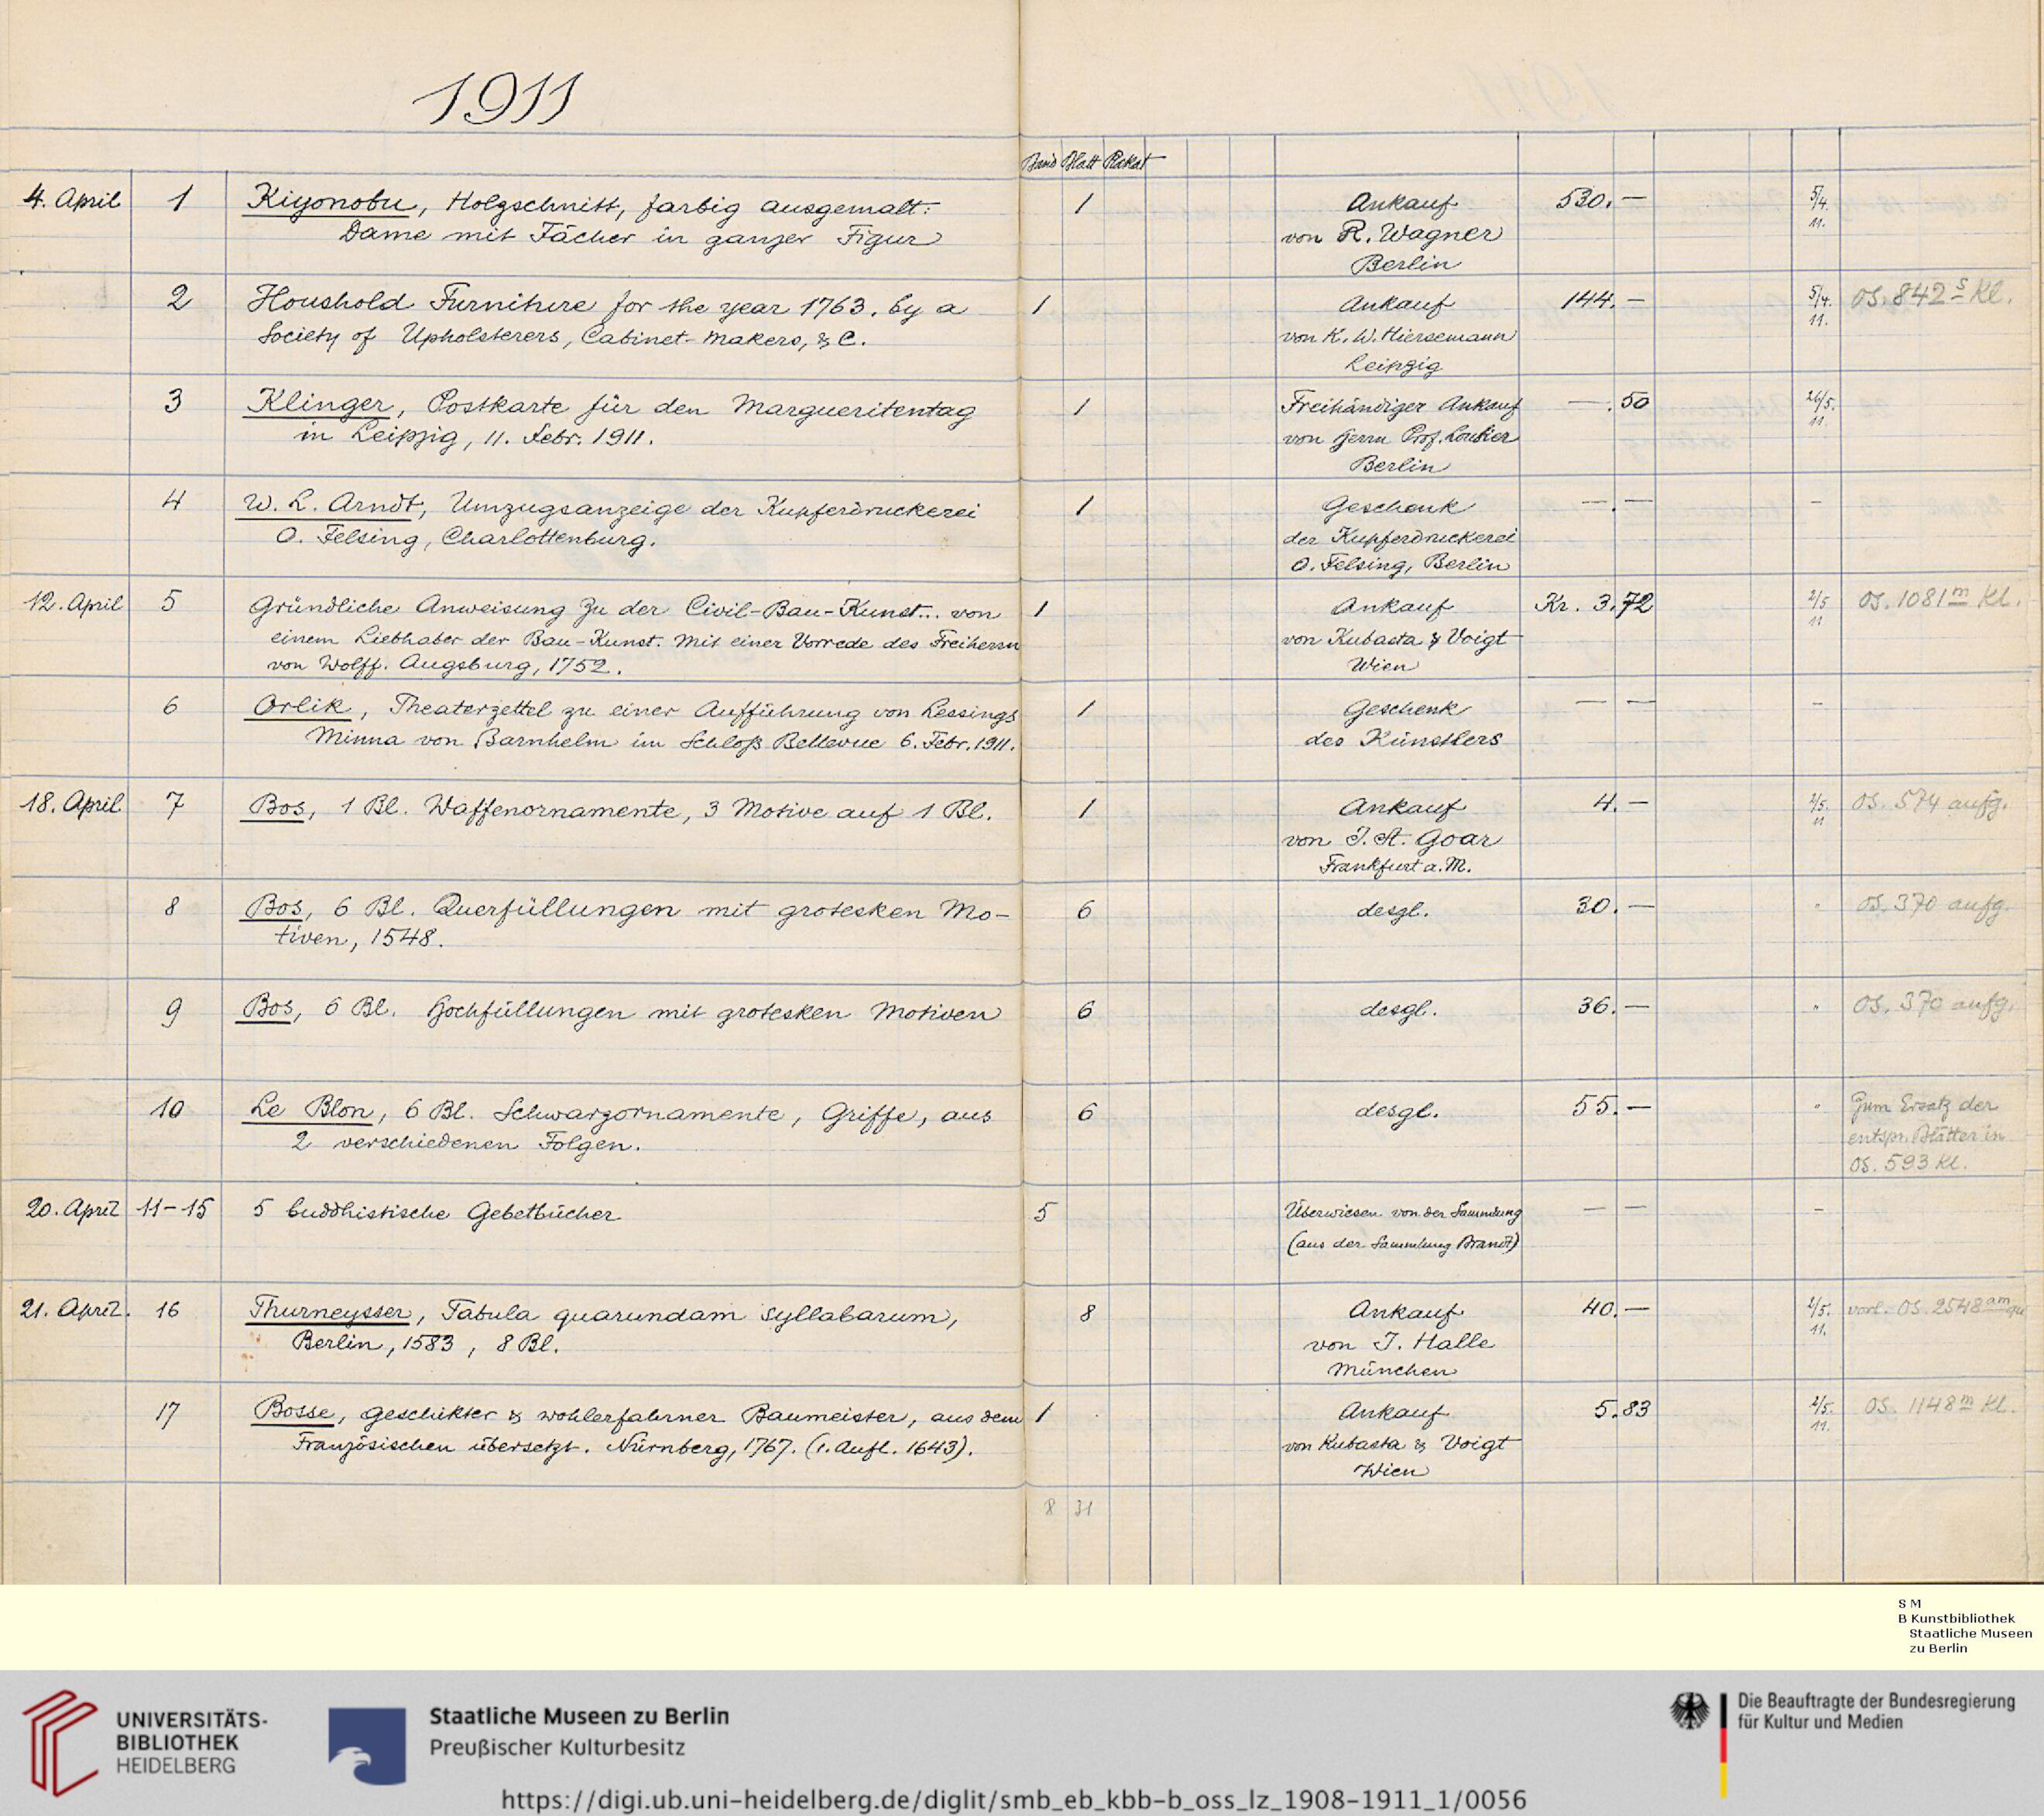 1911
Band Blatt Plakat
4. April 1 Kiyonobu, Holzschnitt, farbig ausgemalt: 1 Ankauf 530.— 5/4.
Dame mit Fächer in ganzer Figur von R. Wagner 11.
Berlin
2 Houshold Furniture for the year 1763. by a 1 Ankauf 144.— 5/4. OS. 842 s Kl.
Society of Upholsterers, Cabinet-makers, & C. von K. W. Hiersemann 11.
Leipzig
3 Klinger, Postkarte für den Margueritentag 1 Freihändiger Ankauf —.50 26/5.
in Leipzig, 11. Febr. 1911. von Herrn Prof. Loubier 11.
Berlin
4 W. L. Arndt, Umzugsanzeige der Kupferdruckerei 1 Geschenk —.— –
O. Felsing, Charlottenburg. der Kupferdruckerei
O. Felsing, Berlin
12. April 5 Gründliche Anweisung zu der Civil-Bau-Kunst... von 1 Ankauf Kr. 3.72 2/5 OS. 1081 m Kl.
einem Liebhaber der Bau-Kunst. Mit einer Vorrede des Freiherrn von Kubasta & Voigt 11
von Wolff. Augsburg, 1752. Wien
6 Orlik, Theaterzettel zu einer Aufführung von Lessings 1 Geschenk — — –
Minna von Barnhelm im Schloß Bellevue 6. Febr. 1911. des Künstlers
18. April 7 Bos, 1 Bl. Waffenornamente, 3 Motive auf 1 Bl. 1 Ankauf 4.— 2/5. OS. 574 aufg.
von J. St. Goar 11
Frankfurt a. M.
8 Bos, 6 Bl. Querfüllungen mit grotesken Mo- 6 desgl. 30.— " OS. 370 aufg.
tiven, 1548.
9 Bos, 6 Bl. Hochfüllungen mit grotesken Motiven 6 desgl. 36.— " OS. 370 aufg.
10 Le Blon, 6 Bl. Schwarzornamente, Griffe, aus 6 desgl. 55.— " Zum Ersatz der
2 verschiedenen Folgen. entspr. Blätter in
OS. 593 Kl.
20. April 11–15 5 buddhistische Gebetbücher 5 Überwiesen von der Sammlung — — –
(aus der Sammlung Brandt)
21. April. 16 Thurneysser, Tabula quarundam syllabarum, 8 Ankauf 40.— 2/5. vorl. OS. 2548 am
Berlin, 1583, 8 Bl. von J. Halle 11.
München
17 Bosse, geschikter & wohlerfahrner Baumeister, aus dem 1 Ankauf 5.83 2/5. OS. 1148 m Kl.
Französischen übersetzt. Nürnberg, 1767. (1. Aufl. 1643). von Kubasta & Voigt 11.
Wien
8 31
S M
B Kunstbibliothek
Staatliche Museen
zu Berlin
UNIVERSITÄTS-
BIBLIOTHEK
HEIDELBERG
Staatliche Museen zu Berlin
Preußischer Kulturbesitz
Die Beauftragte der Bundesregierung
für Kultur und Medien
https://digi.ub.uni-heidelberg.de/diglit/smb_eb_kbb-b_oss_lz_1908-1911_1/0056